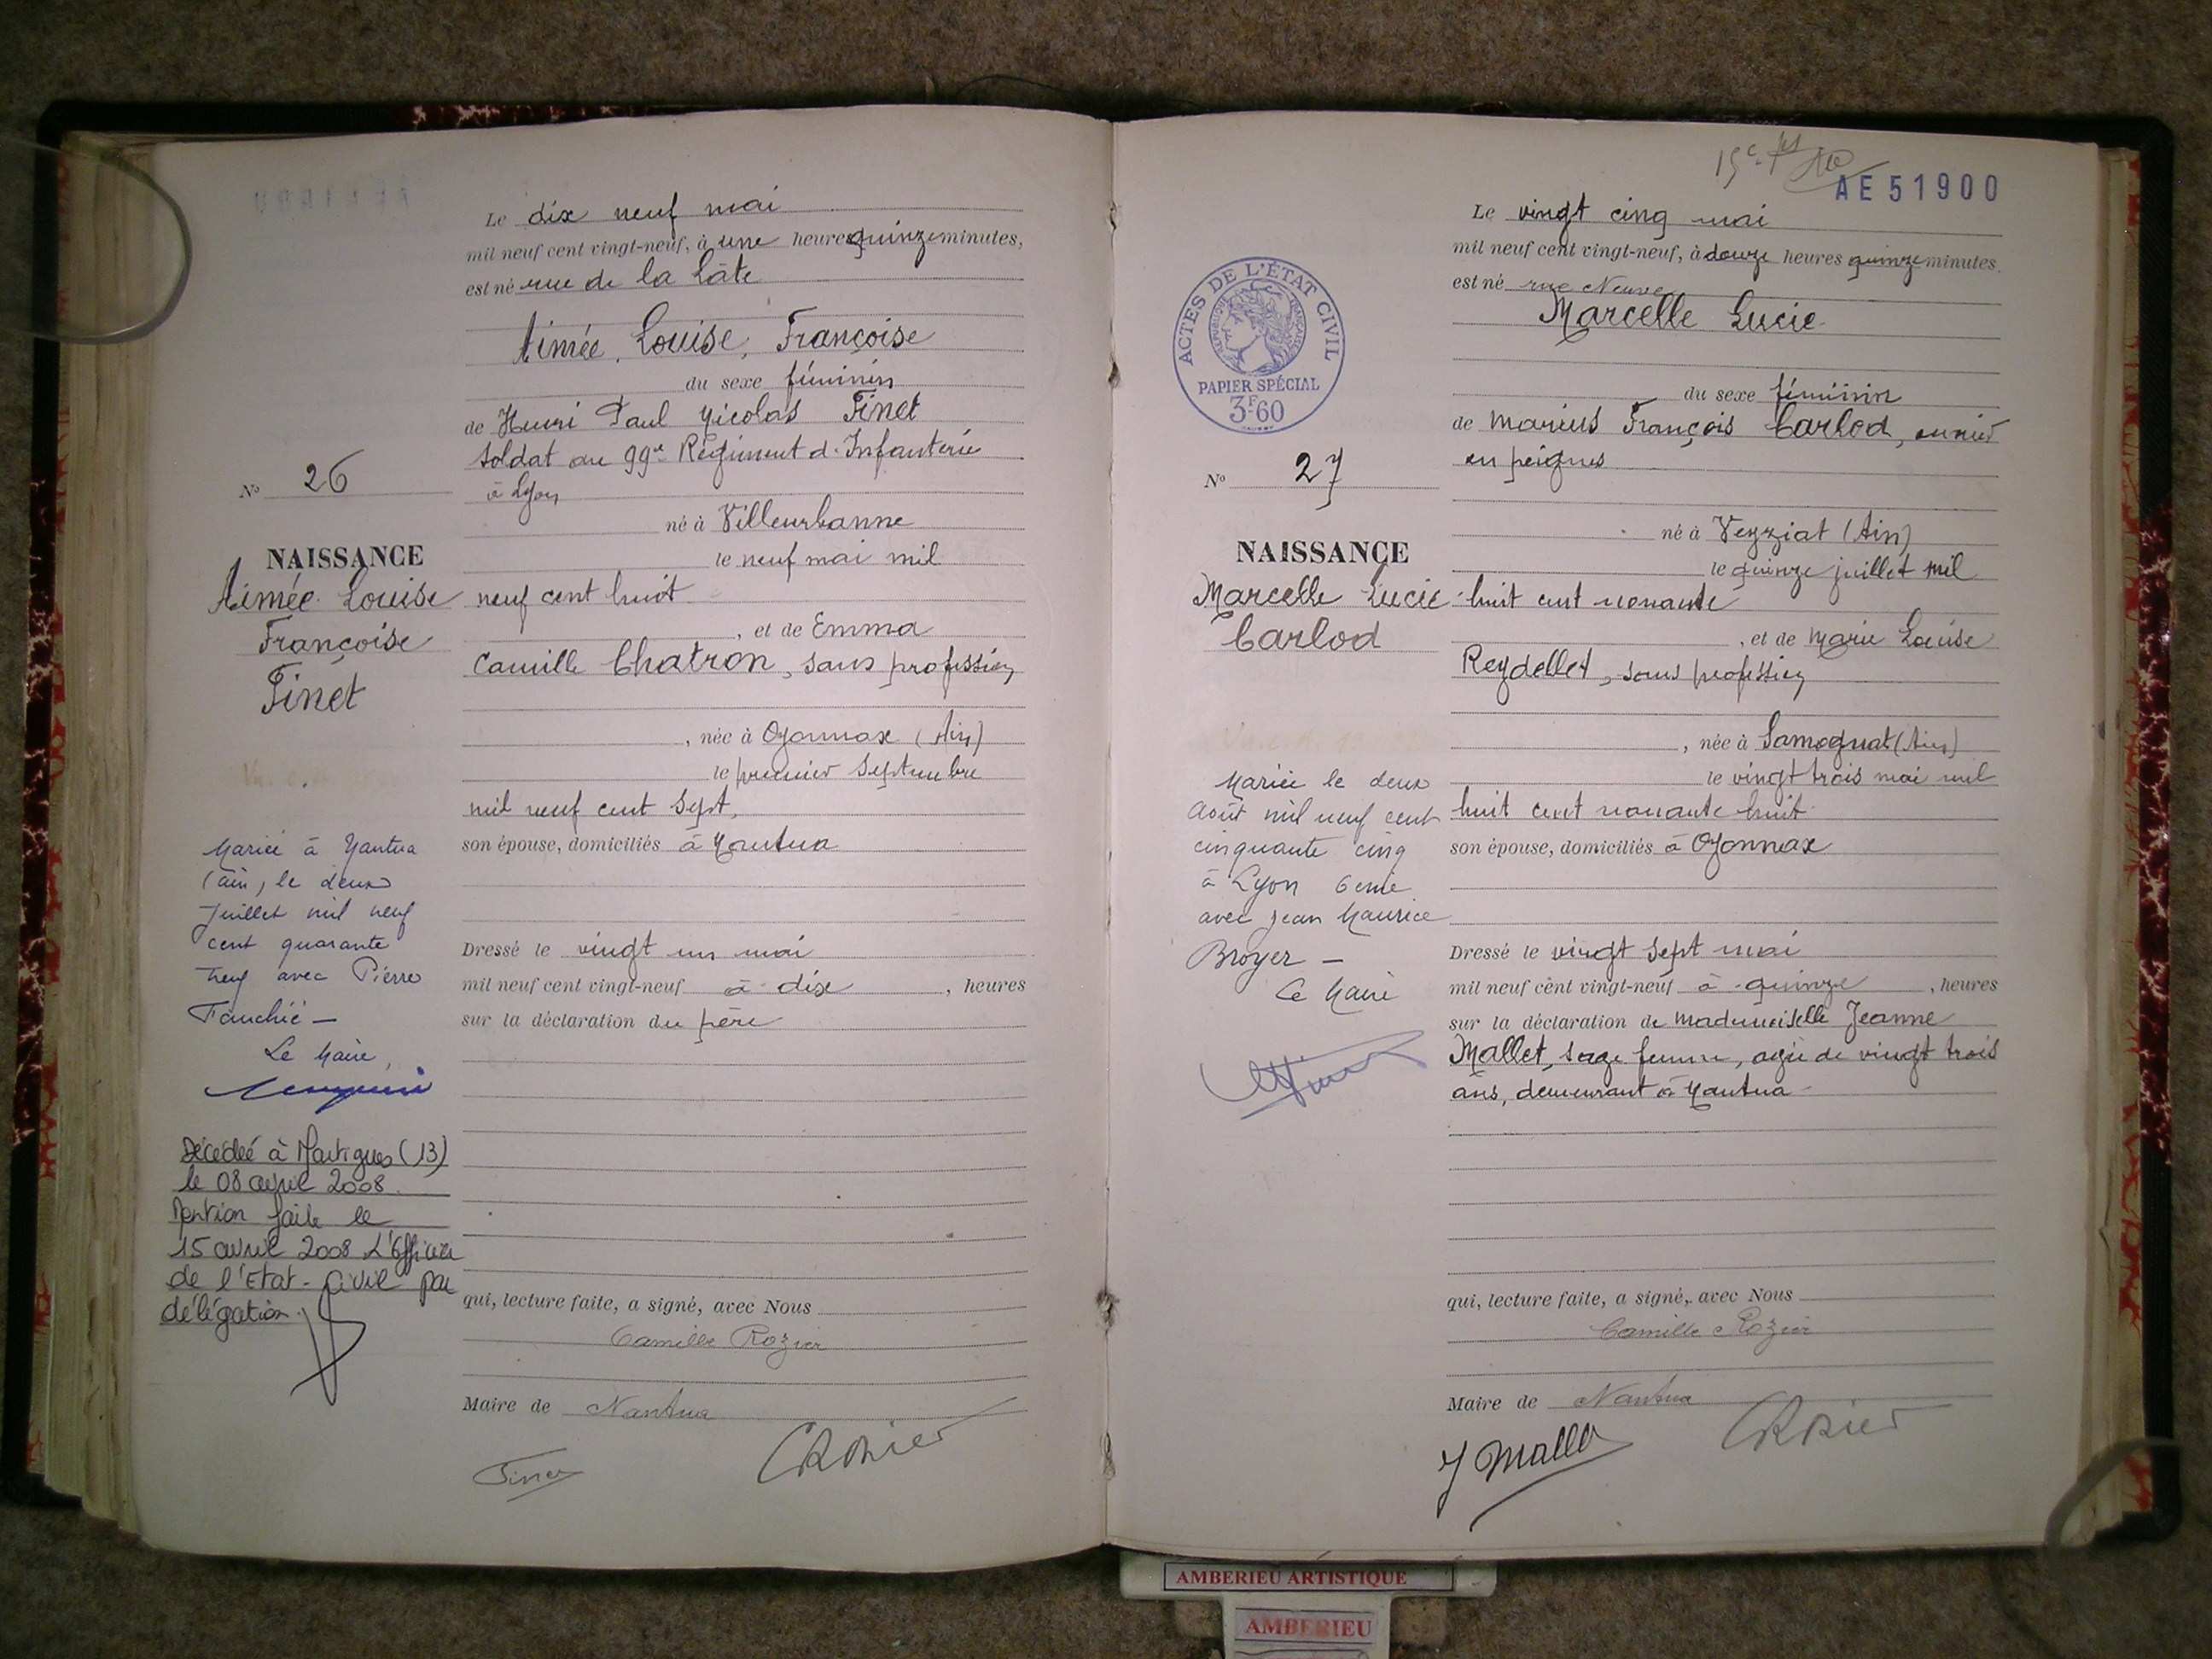 N° 26
NAISSANCE
Aimée Louise
Françoise
Finet
Mariée à Nantua
(Ain) le deux
Juillet mil neuf
cent quarante
neuf avec Pierre
Fauchié —
Le Maire,
Décédée à Martigues (13)
le 08 avril 2008.
Mention faite le
15 avril 2008 L'Officier
de l'Etat-Civil par
délégation.
Le dix neuf mai
mil neuf cent vingt-neuf, à une heures quinze minutes,
est né rue de la
Aimée, Louise, Françoise
du sexe féminin
de Henri Paul Nicolas Finet
soldat au 99e Régiment d'Infanterie
à Lyon
né à Villeurbanne
le neuf mai mil
neuf cent huit
, et de Emma
Camille Chatron, sans profession
, née à Oyonnax (Ain)
le premier Septembre
mil neuf cent sept,
son épouse, domiciliés à Nantua
Dressé le vingt un mai
mil neuf cent vingt-neuf à dix , heures
sur la déclaration du père
qui, lecture faite, a signé, avec Nous
Camille Rozier
Maire de Nantua
Finet
CRozier
AE 51900
ACTES DE L'ÉTAT CIVIL
RÉPUBLIQUE FRANÇAISE
PAPIER SPÉCIAL
3F60
N° 27
NAISSANCE
Marcelle Lucie
Carlod
Mariée le deux
Août mil neuf cent
cinquante cinq
à Lyon 6eme
avec Jean Maurice
Broyer —
Le Maire
Le vingt cinq mai
mil neuf cent vingt-neuf, à douze heures quinze minutes.
est né rue Neuve
Marcelle Lucie
du sexe féminin
de Marius François Carlod, ouvrier
en peignes
né à Veyziat (Ain)
le quinze juillet mil
huit cent nonante
, et de Marie Louise
Reydellet, sans profession
, née à Samognat (Ain)
le vingt trois mai mil
huit cent nonante huit
son épouse, domiciliés à Oyonnax
Dressé le vingt sept mai
mil neuf cent vingt-neuf à quinze , heures
sur la déclaration de Mademoiselle Jeanne
Mallet, sage femme, agée de vingt trois
ans, demeurant à Nantua
qui, lecture faite, a signé, avec Nous
Camille Rozier
Maire de Nantua
J Mallet
CRozier
AMBERIEU ARTISTIQUE
AMBERIEU